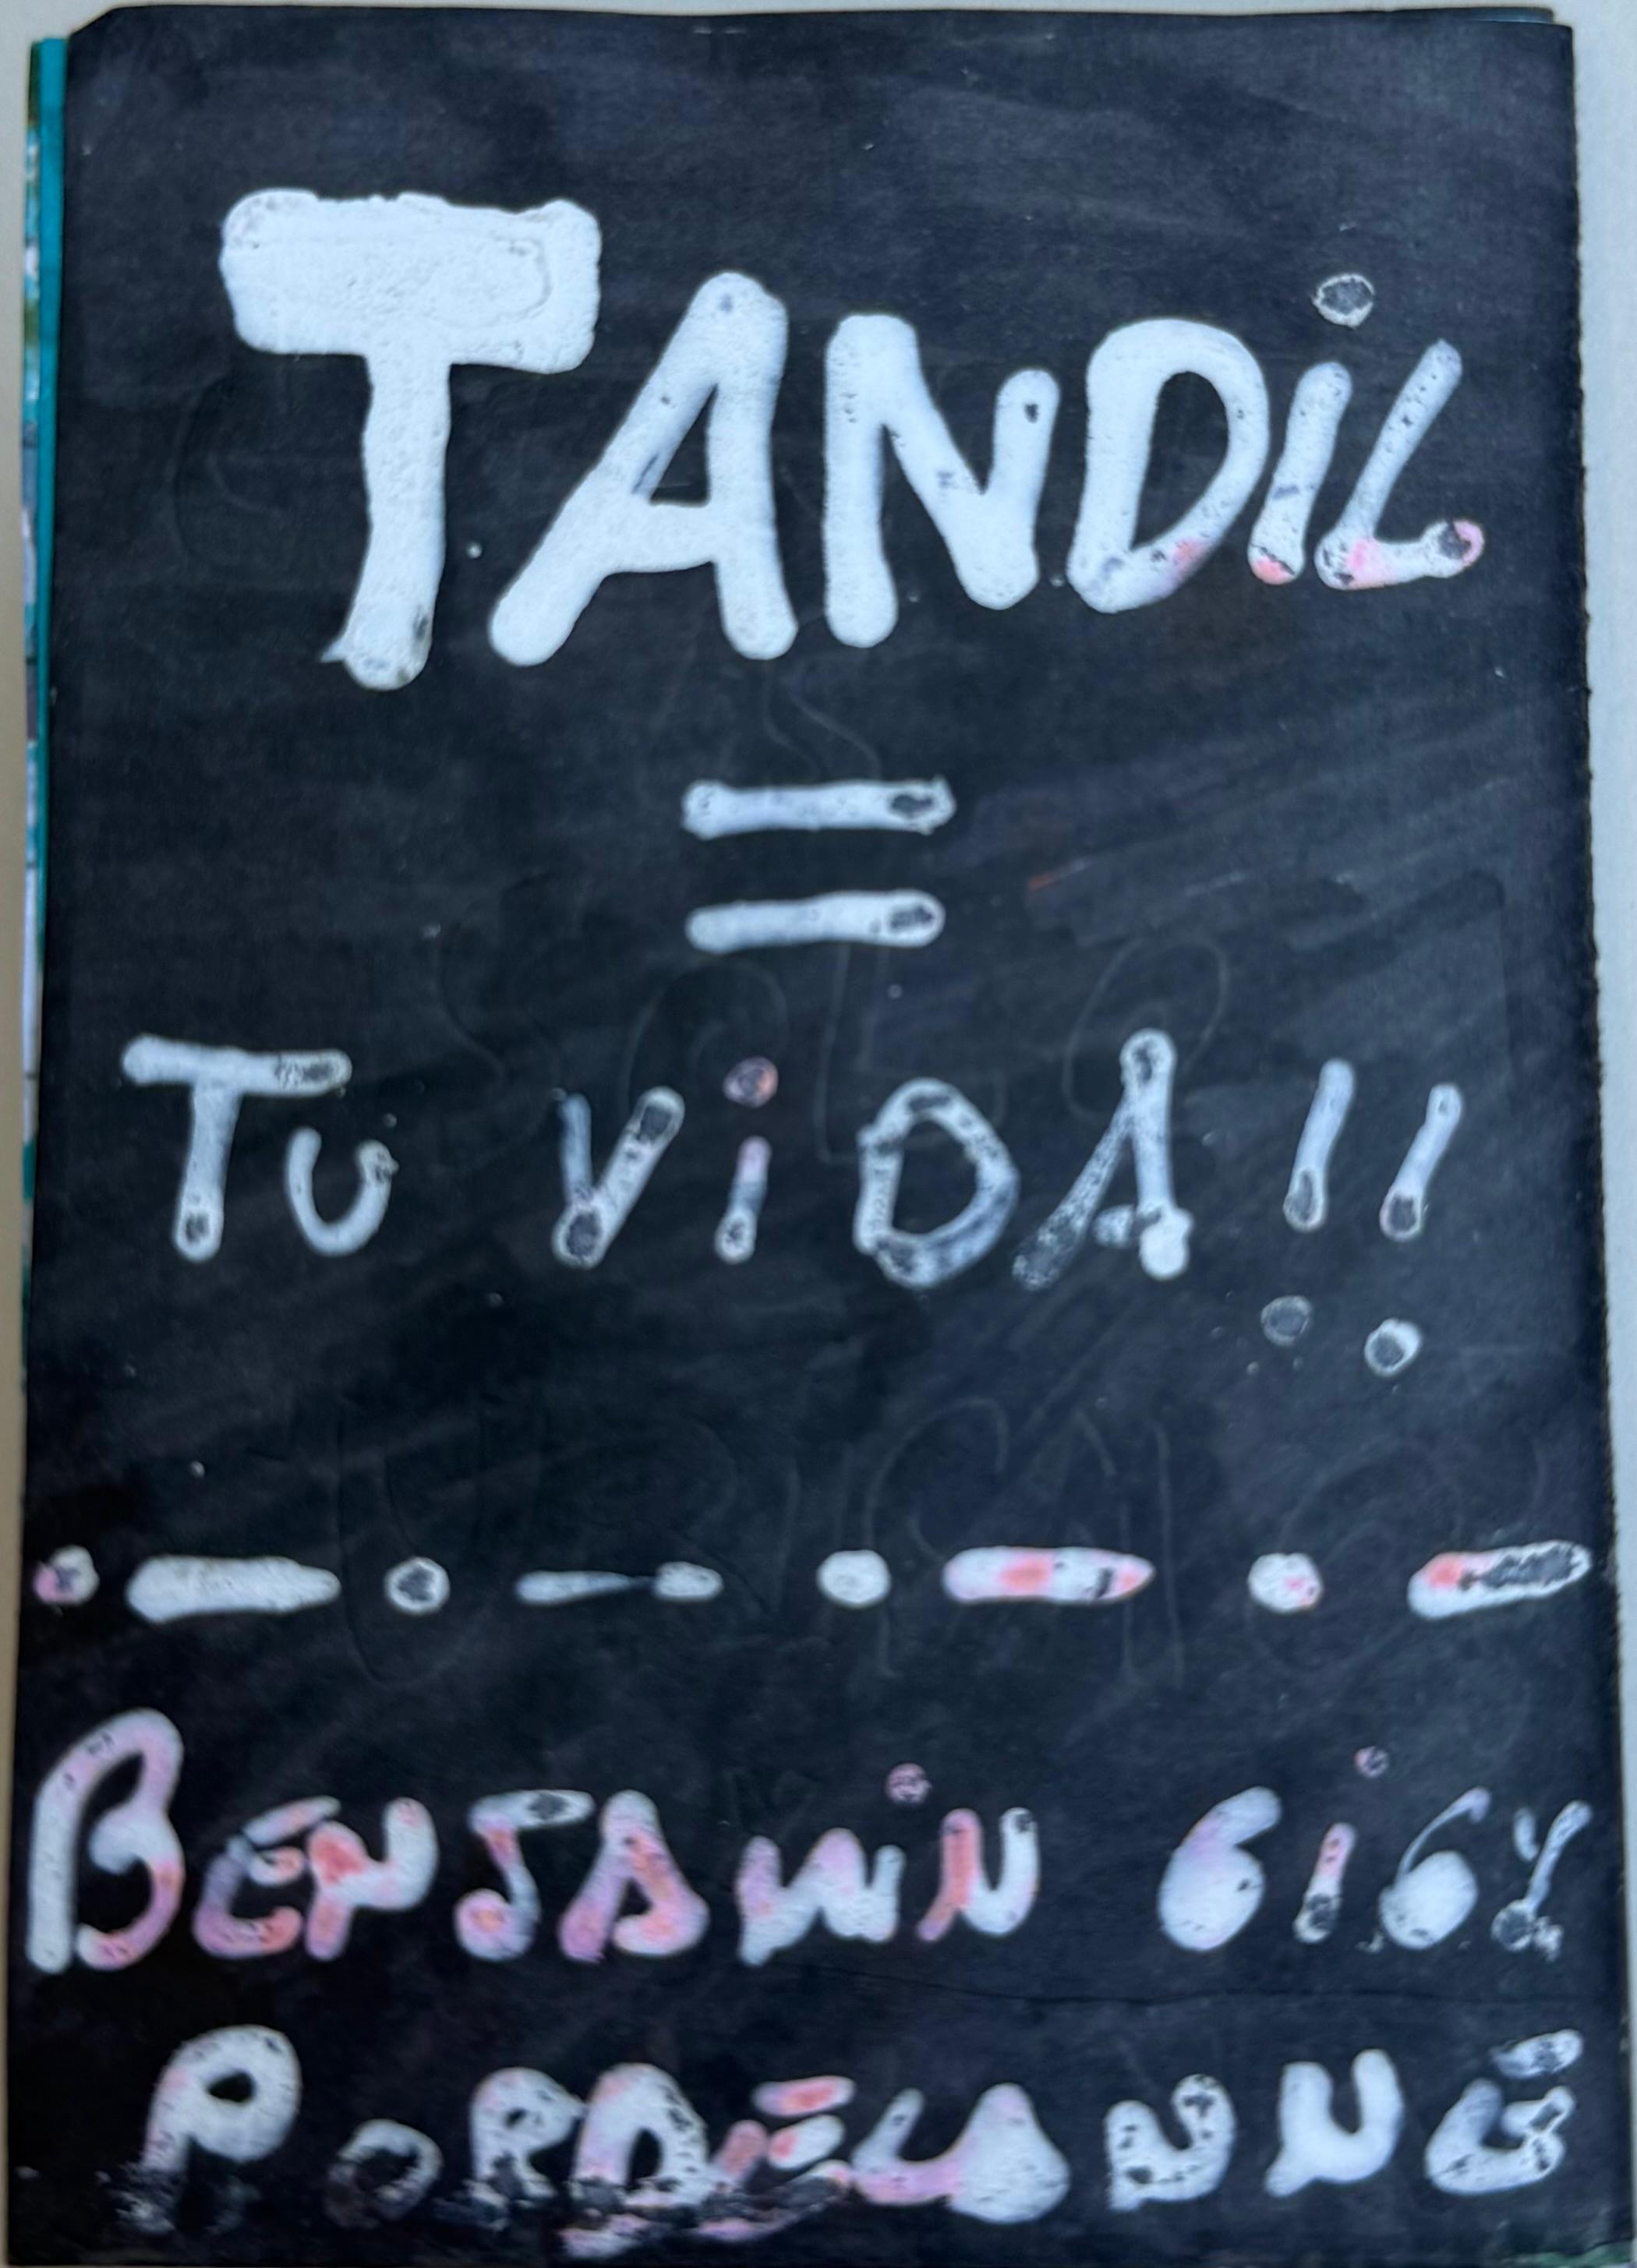 TANDiL
=
Tu ViDA!!
. - . - . - . -
BENJAMiN GiGY
PORDELANNE